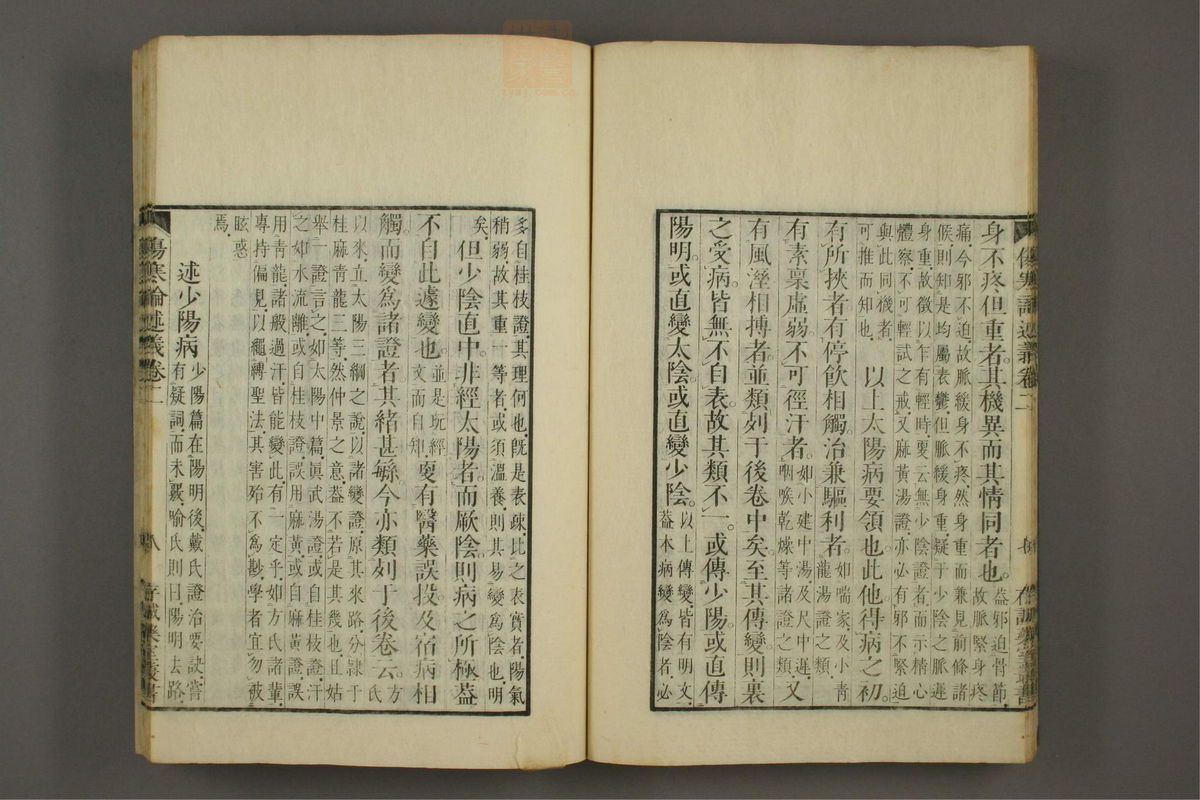 身不疼但重者。其機異而其情同者也。蓋邪迫骨節。故脈緊身疼
痛。今邪不迫。故脈緩身不疼。然身重而兼見前條諸
候。則知是均屬表鬱。但脈緩身重。疑于少陰之脈遲
身重。故徵以乍有輕時。要云無少陰證者。而示精心
體察。不可輕試之戒。又麻黃湯證。亦必有邪不緊迫
與此同機者。可推而知也。以上太陽病要領也。此他得病之初。
有所挾者。有停飲相觸。治兼驅利者。如喘家及小青龍湯證之類。
有素稟虛弱。不可徑汗者。如小建中湯。及尺中遲。咽喉乾燥等諸證之類。又
有風溼相搏者。並類列于後卷中矣。至其傳變則裏
之受病。皆無不自表。故其類不一。或傳少陽。或直傳
陽明。或直變太陰。或直變少陰。以上傳變。皆有明文。蓋本病變為陰者。必
多自桂枝證。其理何也。旣是表疎。比之表實者。陽氣
稍弱。故其重一等者。或須溫養。則其易變為陰也。明
矣。但少陰直中。非經太陽者。而厥陰則病之所極。蓋
不自此遽變也。並是玩經文而自知。更有醫藥誤投。及宿病相
觸。而變為諸證者。其緒甚緐。今亦類列于後卷云。方氏
以來。立太陽三綱之說。以諸變證。原其來路。分隸于
桂麻青龍三等。然仲景之意。蓋不若是其幾也。且姑
舉一證言之。如太陽中篇。眞武湯證。或自桂枝證。汗
之如水流離。或自桂枝證。誤用麻黃。或自麻黃證。誤
用青龍。諸般過汗。皆能變此。有一定乎。如方氏諸輩。
專持偏見。以繩縛聖法。其害殆不為尠。學者宜勿被
眩惑
焉。
述少陽病 少陽篇在陽明後。戴氏證治要訣。嘗有疑詞。而未覈。喻氏則曰陽明去路。
傷寒論述義卷二
八
存誠藥室叢書